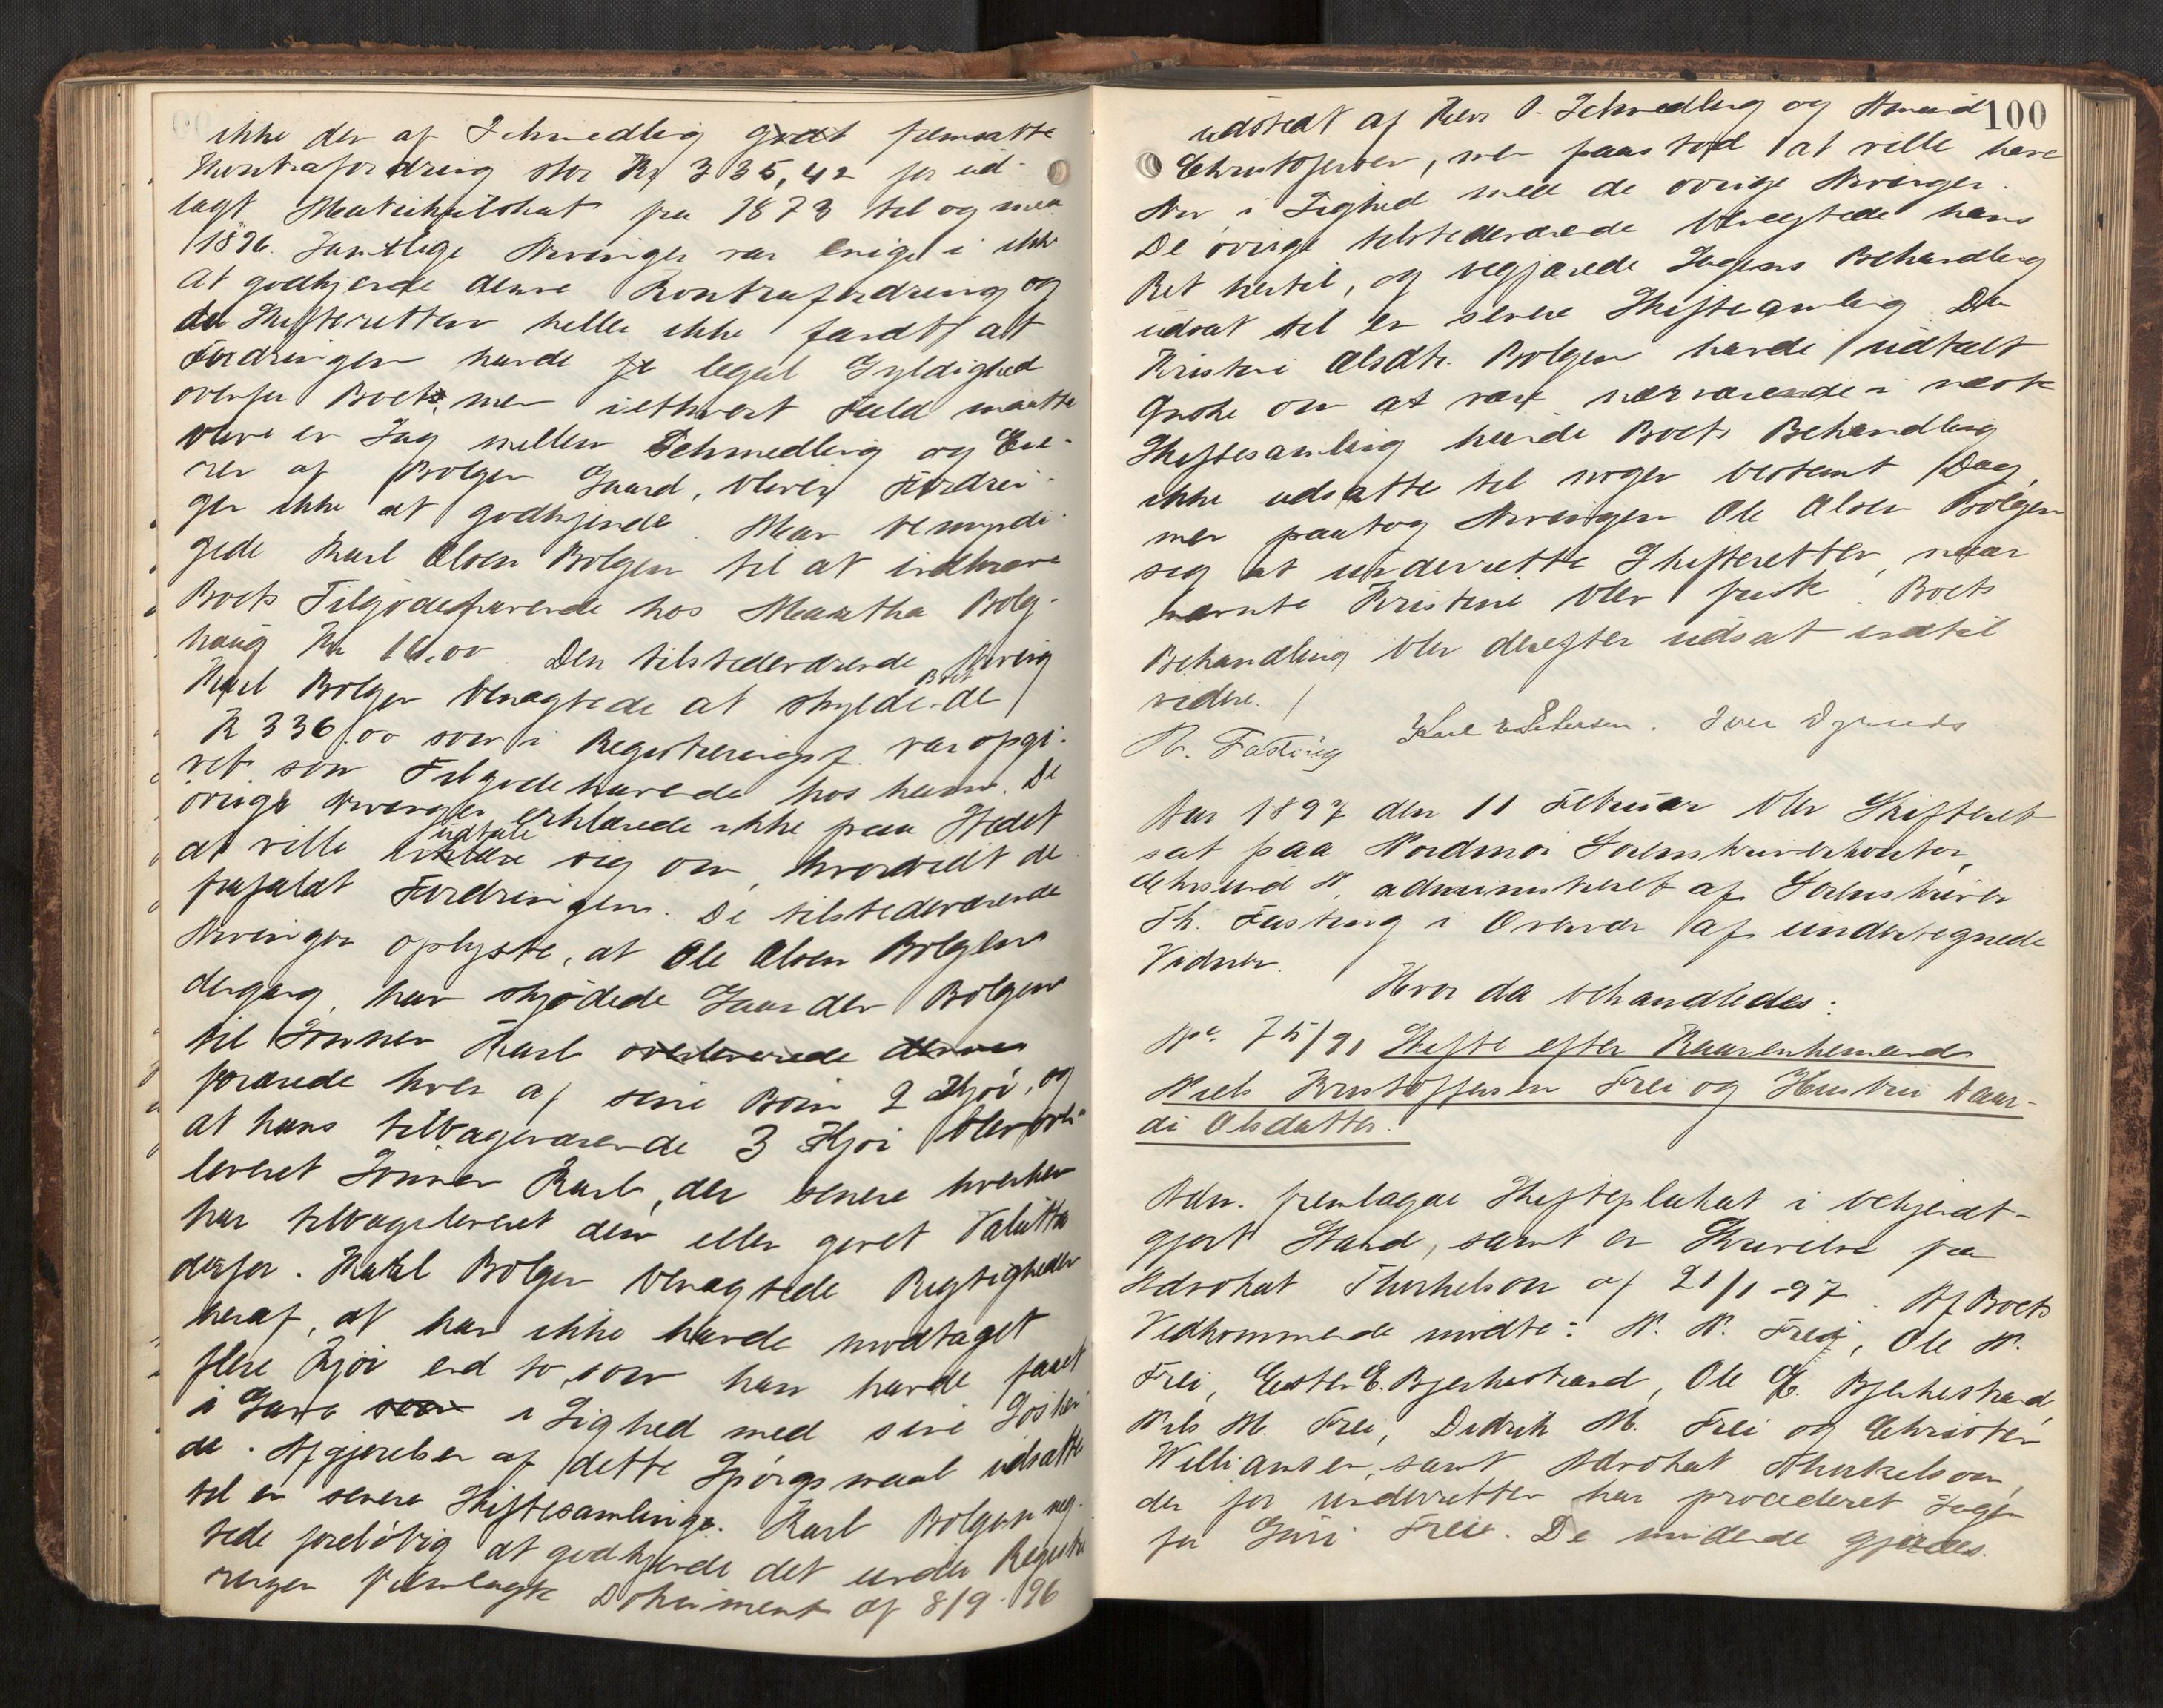 ikke den af Schmedling godt fremsatte
Kontrafordring stor Kr 335,42 for ud-
lagt Matrikulskat fra 1873 til og med
1896. Samtlige Arvinger var enige i ikke
at godkjende denne Kontrafordring og
da Skifteretten heller ikke fandt, at
Fordringen havde legal Gyldighed
overfor Boet, men iethvert Fald maatte
være en Sag mellem Schmedling og Eie-
ren af Bolgen Gaard, blev Fordrin-
gen ikke at godkjende. Man bemyndi-
gede Karl Olsen Bolgen til at indkræve
Boets Tilgodehavende hos Martha Bolg-
haug Kr 10.00. Den tilstedeværende Arving
Karl Bolgen benægtede at skylde Boet de
Kr 336.00 som i Registreringsf. var opgi-
vet som Tilgodehavende hos ham. De
øvrige Arvinger erklærede ikke paa Stedet
at ville udtale sig om, hvorvidt de
frafaldt Fordringen. De tilstedeværende
Arvinger oplyste, at Ole Olsen Bolgen
dengang han skjødede Gaarden Bolgen
til Sønnen Karl overleverede denne
forærede hver af sine Børn 2 Kjør, og
at hans tilbageværende 3 Kjør blev over-
leveret Sønnen Karl, der senere hverken
har tilbageleveret dem eller givet Valutta
derfor. Karl Bolgen benægtede Rigtigheden
heraf, at han ikke havde modtaget
flere Kjør end to, som han havde faaet
i Gave som i Lighed med sine Søsken-
de. Afgjørelsen af dette Spørgsmaal udsattes
til en senere Skiftesamling. Karl Bolgen neg-
tede foreløbig at godkjende det under Registre-
ringen fremlagte Dokument af 8/9-96
100
udstedt af Herr O. Schmedling og Amund
Christofersen, men paastod at ville have
Arv i Lighed med de øvrige Arvinger.
De øvrige tilstedeværende benægtede hans
Ret hertil, og begjærede Sagens Behandling
udsat til en senere Skiftesamling. Da
Kristine Olsdtr. Bolgen havde udtalt
Ønske om at være nærværende i næste
Skiftesamling havde Boets Behandling
ikke udsatte til nogen bestemt Dag,
men paatog Arvingen Ole Olsen Bolgen
sig at underrette Skifteretten, naar
nævnte Kristine blev frisk. Boets
Behandling blev derefter udsat indtil
videre. /
Th. Fasting Karl E Petersen. Iver
Aar 1897 den 11 Februar blev Skifteret
sat paa Nordmør Sorenskriverkontor,
Kr.sund N, administreret af Sorenskriver
Th. Fasting i Overvær af undertegnede
Vidner.
Hvor da behandledes:
No. 75/91 Skifte efter Kaarenkemand
Niels Kristoffersen Frei og Hustru Baar-
di Olsdatter.
Adm. fremlagde Skifteplakat i bekjendt-
gjort Stand, samt en Skrivelse fra
Advokat Thurkelson af 21/1-97. Af Boets
Vedkommende mødte: N. N. Frei, Ole N.
Frei, Ester E. Bjerkestrand, Ole E. Bjerkestrand,
Nils M. Frei, Didrik M. Frei og Christen
Williamsen, samt Advokat Thurkelson,
der for Underretten har procederet Sagen
for Guri Frei. De mødende gjordes